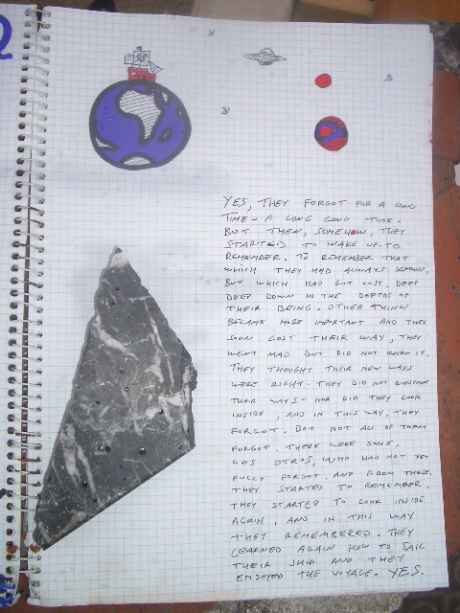 YES, THEY FORGOT FOR A LONG
TIME - A LONG LONG TIME.
BUT THEN, SOMEHOW, THEY
STARTED TO WAKE UP. TO
REMEMBER. TO REMEMBER THAT
WHICH THEY HAD ALWAYS KNOWN,
BUT WHICH HAD GOT LOST, DEEP
DEEP DOWN IN THE DEPTHS OF
THEIR BEING. OTHER THINGS
BECAME MORE IMPORTANT AND THEY
SOON LOST THEIR WAY, THEY
WENT MAD BUT DID NOT KNOW IT.
THEY THOUGHT THEIR NEW WAYS
WERE RIGHT - THEY DID NOT QUESTION
THEIR WAYS - NOR DID THEY LOOK
INSIDE, AND IN THIS WAY, THEY
FORGOT. BUT NOT ALL OF THEM
FORGOT. THERE WERE SOME,
LOS OTROS, WHO HAD NOT YET
FULLY FORGOT. AND FROM THERE,
THEY STARTED TO REMEMBER.
THEY STARTED TO LOOK INSIDE
AGAIN, AND IN THIS WAY
THEY REMEMBERED. THEY
LEARNED AGAIN HOW TO SAIL
THEIR SHIP AND THEY
ENJOYED THE VOYAGE. YES.